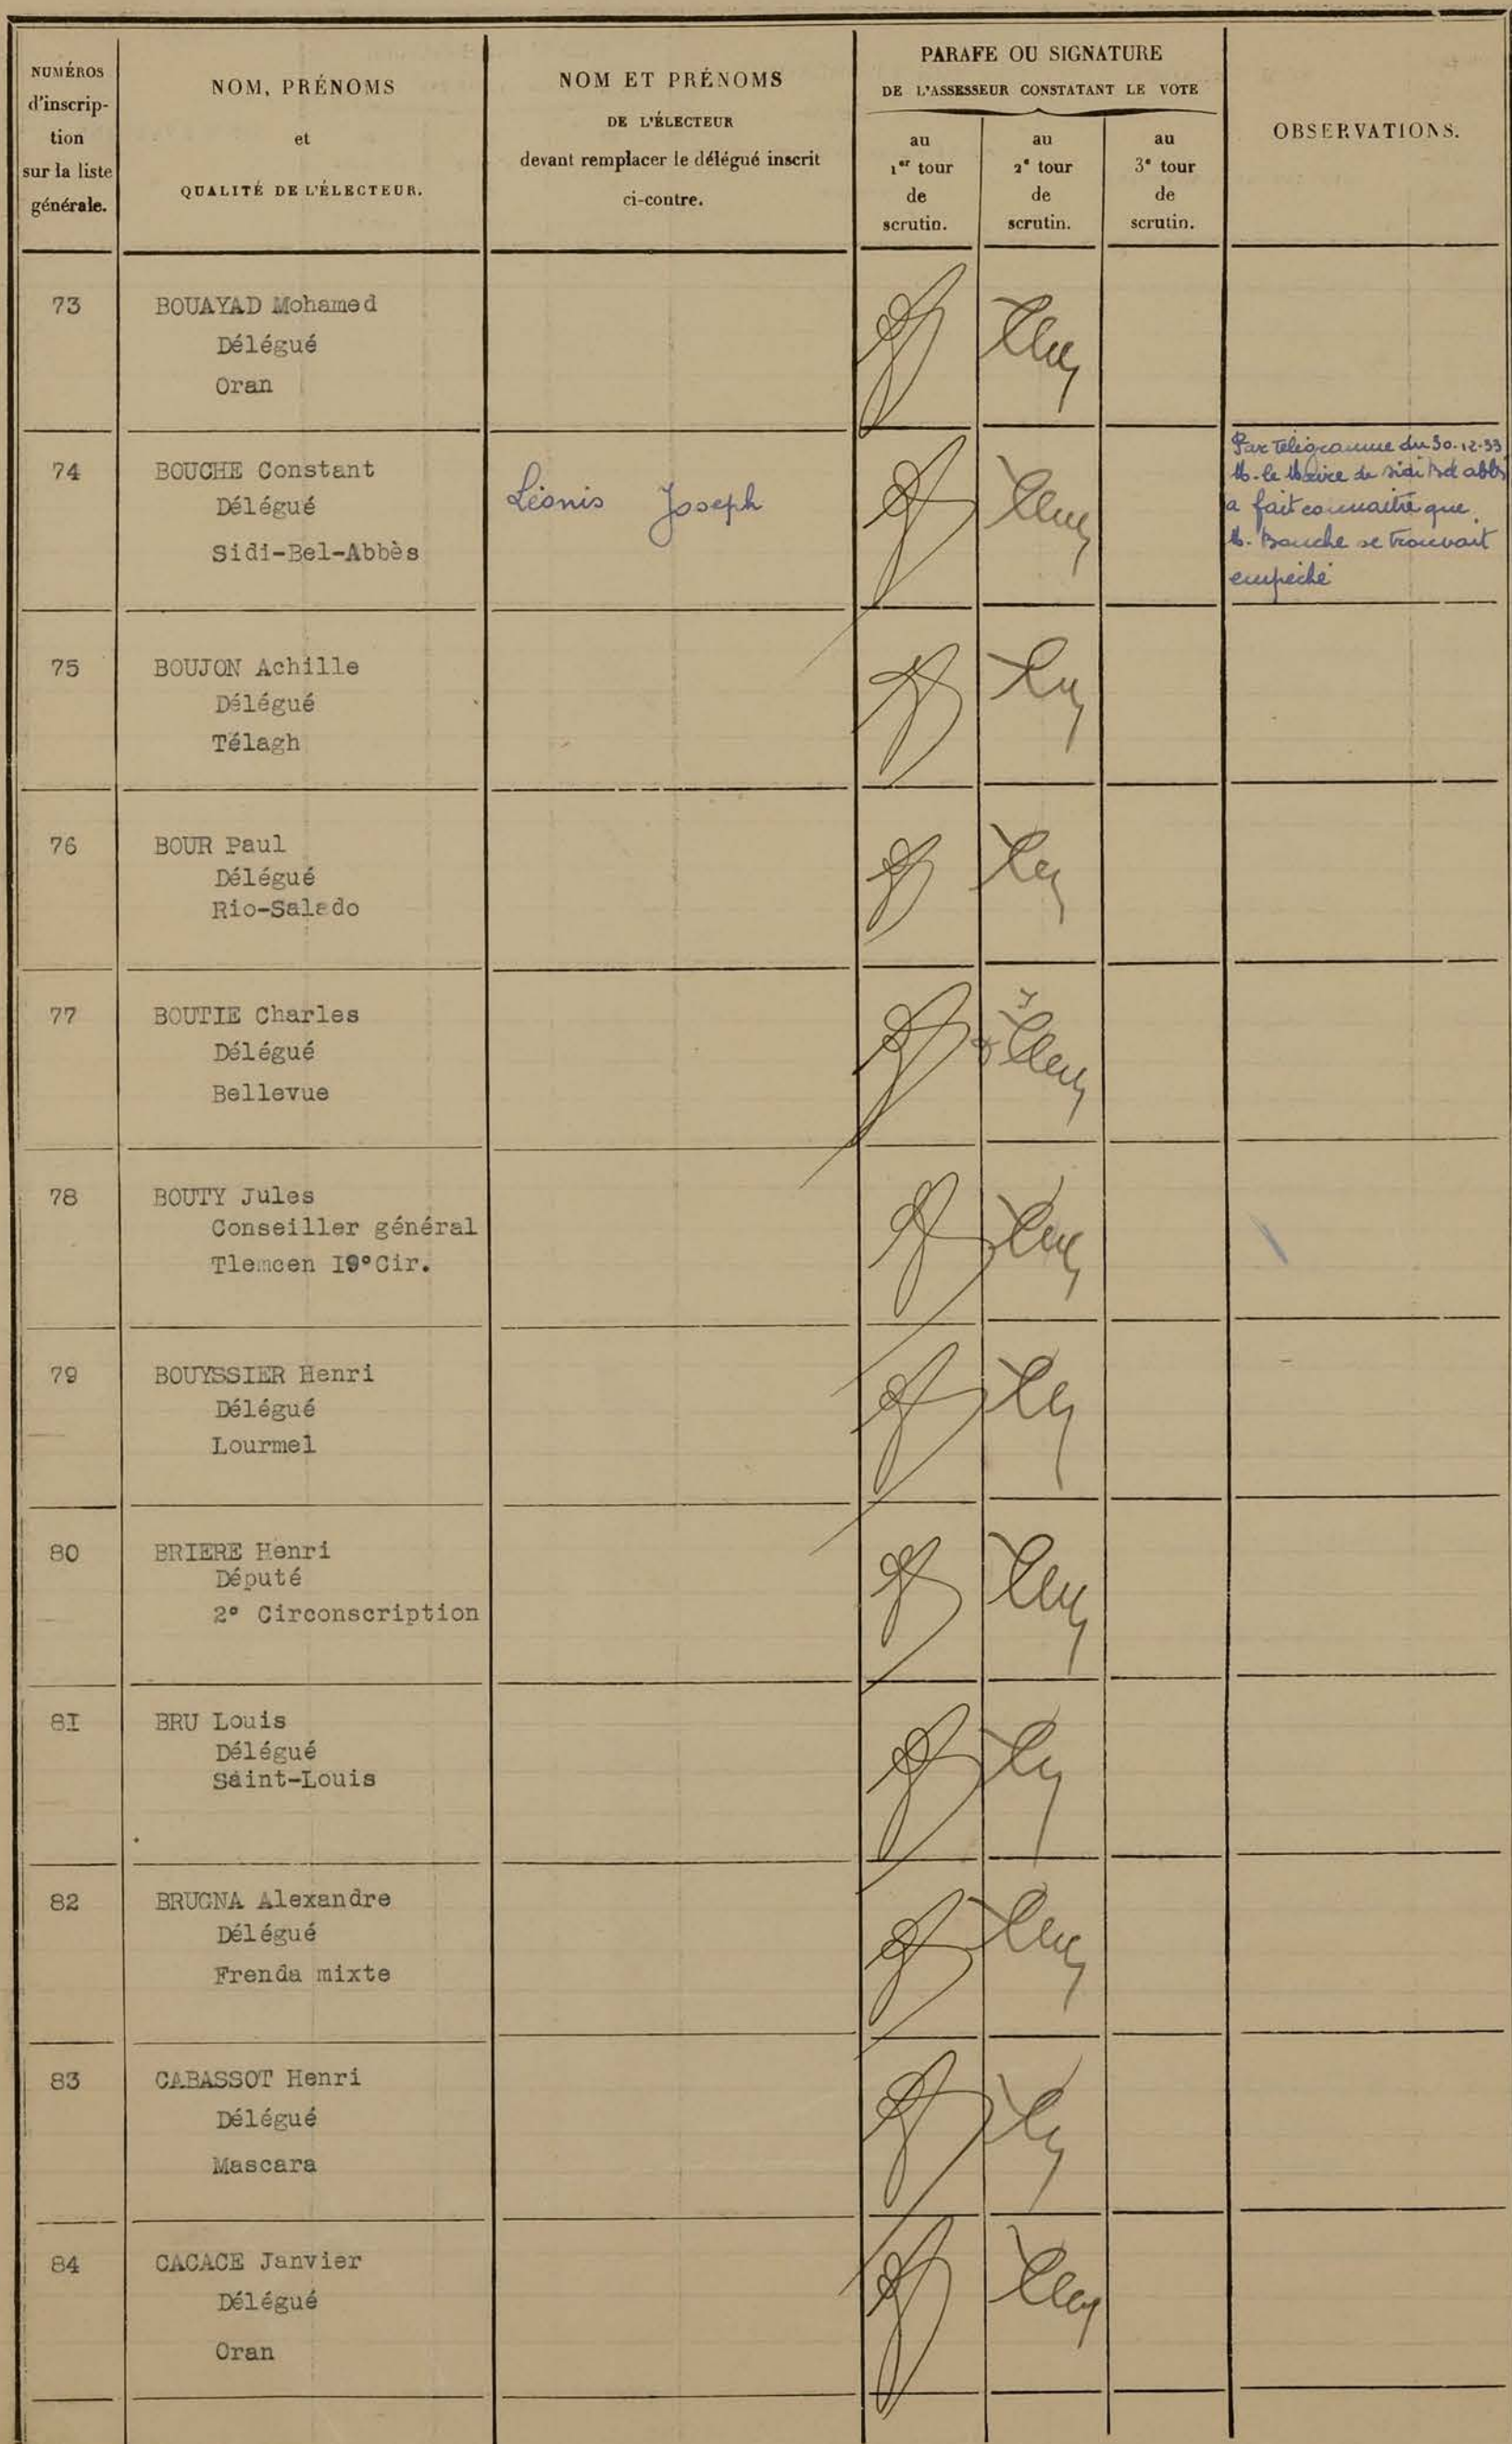 NUMÉROS
d'inscrip-
tion
sur la liste
générale.
NOM, PRÉNOMS
et
QUALITÉ DE L'ÉLECTEUR.
NOM ET PRÉNOMS
DE L'ÉLECTEUR
devant remplacer le délégué inscrit
ci-contre.
PARAFE OU SIGNATURE
DE L'ASSESSEUR CONSTATANT LE VOTE
au
1er tour
de
scrutin.
au
2e tour
de
scrutin.
au
3e tour
de
scrutin.
OBSERVATIONS.
73
BOUAYAD Mohamed
Délégué
Oran
74
BOUCHE Constant
Délégué
Sidi-Bel-Abbès
Léonis Joseph
Par télégramme du 30.12.33
M. le Maire de Sidi Bel abbs
a fait connaitre que
M. Bouche se trouvait
empêché
75
BOUJON Achille
Délégué
Télagh
76
BOUR Paul
Délégué
Rio-Salado
77
BOUTIE Charles
Délégué
Bellevue
78
BOUTY Jules
Conseiller général
Tlemcen I9°Cir.
79
BOUYSSIER Henri
Délégué
Lourmel
80
BRIERE Henri
Député
2° Circonscription
8I
BRU Louis
Délégué
Saint-Louis
82
BRUGNA Alexandre
Délégué
Frenda mixte
83
CABASSOT Henri
Délégué
Mascara
84
CACACE Janvier
Délégué
Oran